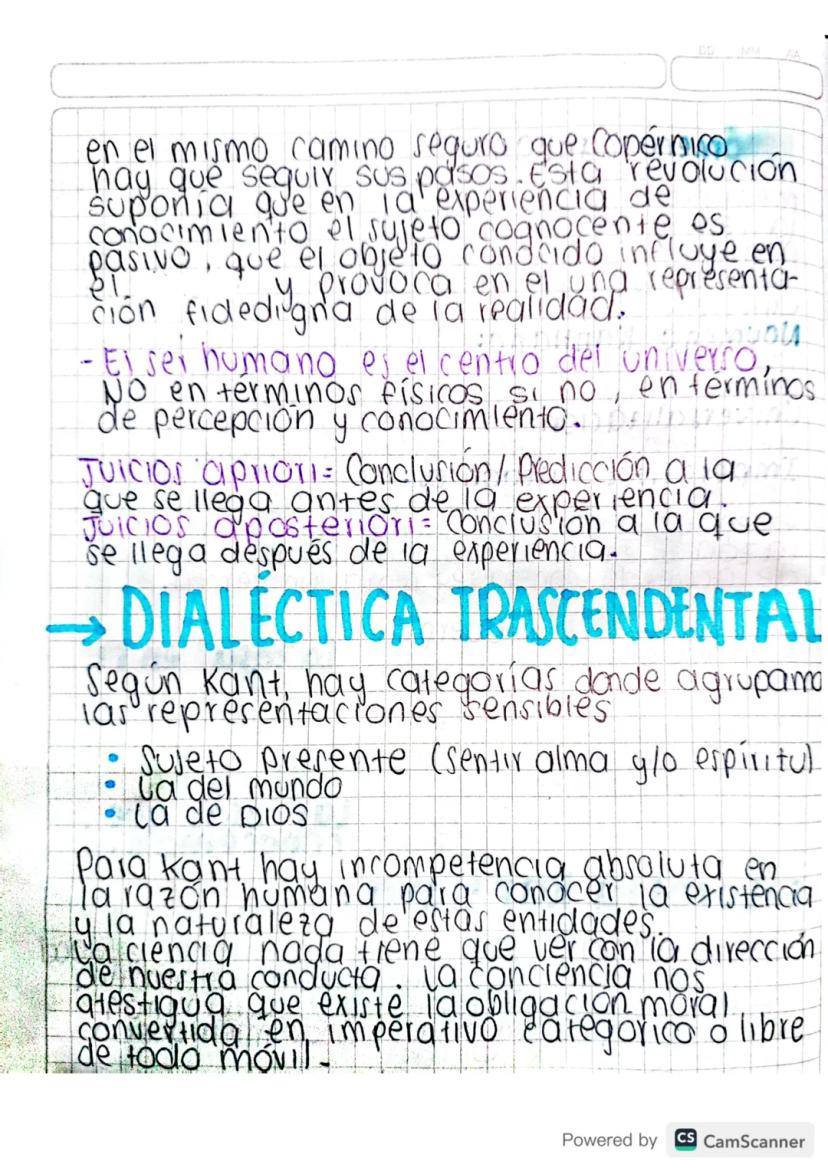 DD MM AA
en el mismo camino seguro que Copérnico
hay que seguir sus pasos. Esta revolución
suponía que en la experiencia de
conocimiento el sujeto cognocente es
pasivo, que el objeto conocido influye en
el y provoca en el una representa-
ción fidedigna de la realidad.
- El ser humano es el centro del universo,
NO en términos físicos si no, en términos
de percepción y conocimiento.
Juicios apriori= Conclusión/Predicción a la
que se llega antes de la experiencia.
Juicios aposteriori= Conclusión a la que
se llega después de la experiencia.
→ DIALÉCTICA TRASCENDENTAL
Según Kant, hay categorías donde agrupamo
las representaciones sensibles
• Sujeto presente (sentir alma y/o espíritu)
• La del mundo
• La de DIOS
Para Kant hay incompetencia absoluta en
la razón humana para conocer la existencia
y la naturaleza de estas entidades.
La ciencia nada tiene que ver con la dirección
de nuestra conducta. La conciencia nos
atestigua que existe la obligación moral
convertida en imperativo categorico o libre
de todo móvil.
Powered by CS CamScanner